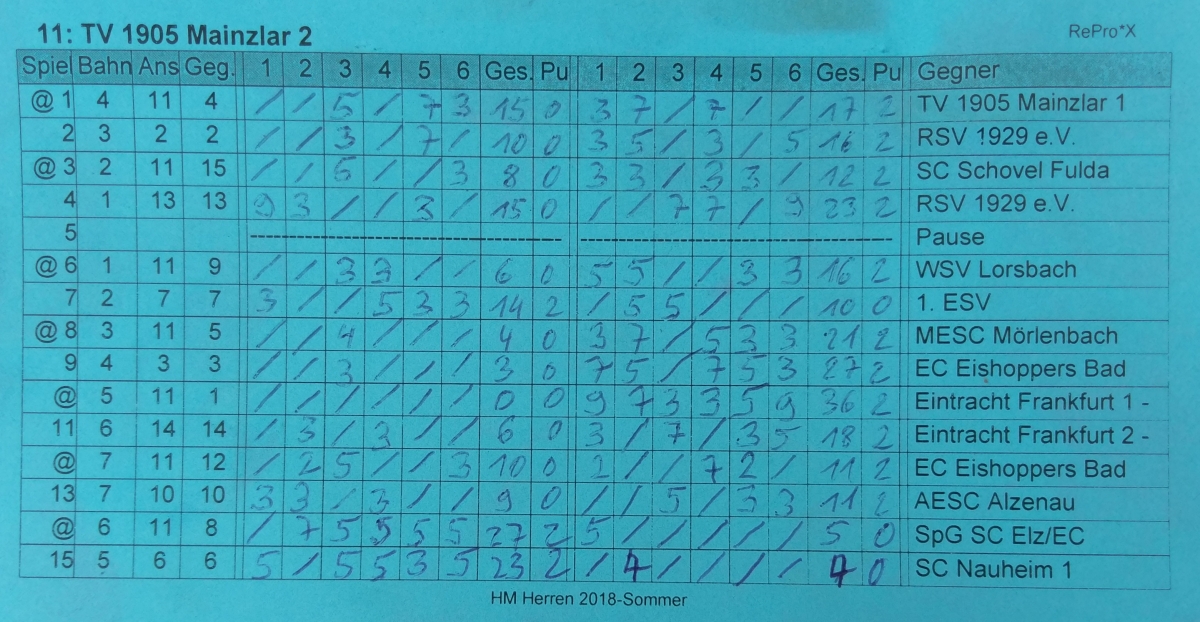 11: TV 1905 Mainzlar 2
RePro*X
Spiel Bahn Ans Geg. 1 2 3 4 5 6 Ges. Pu 1 2 3 4 5 6 Ges. Pu Gegner
@ 1 4 11 4 / / 5 / 7 3 15 0 3 7 / 7 / / 17 2 TV 1905 Mainzlar 1
2 3 2 2 / / 3 / 7 / 10 0 3 5 / 3 / 5 16 2 RSV 1929 e.V.
@ 3 2 11 15 / / 5 / / 3 8 0 3 3 / 3 3 / 12 2 SC Schovel Fulda
4 1 13 13 9 3 / / 3 / 15 0 / / 7 7 / 9 23 2 RSV 1929 e.V.
5 Pause
@ 6 1 11 9 / / 3 3 / / 6 0 5 5 / / 3 3 16 2 WSV Lorsbach
7 2 7 7 3 / / 5 3 3 14 2 / 5 5 / / / 10 0 1. ESV
@ 8 3 11 5 / / 4 / / / 4 0 3 7 / 5 3 3 21 2 MESC Mörlenbach
9 4 3 3 / / 3 / / / 3 0 7 5 / 7 5 3 27 2 EC Eishoppers Bad
@ 5 11 1 / / / / / / 0 0 9 7 3 3 5 9 36 2 Eintracht Frankfurt 1 -
11 6 14 14 / 3 / 3 / / 6 0 3 / 7 / 3 5 18 2 Eintracht Frankfurt 2 -
@ 7 11 12 / 2 5 / / 3 10 0 2 / / 7 2 / 11 2 EC Eishoppers Bad
13 7 10 10 3 3 / 3 / / 9 0 / / 5 / 3 3 11 2 AESC Alzenau
@ 6 11 8 / 7 5 5 5 5 27 2 5 / / / / / 5 0 SpG SC Elz/EC
15 5 6 6 5 / 5 5 3 5 23 2 / 4 / / / / 4 0 SC Nauheim 1
HM Herren 2018-Sommer